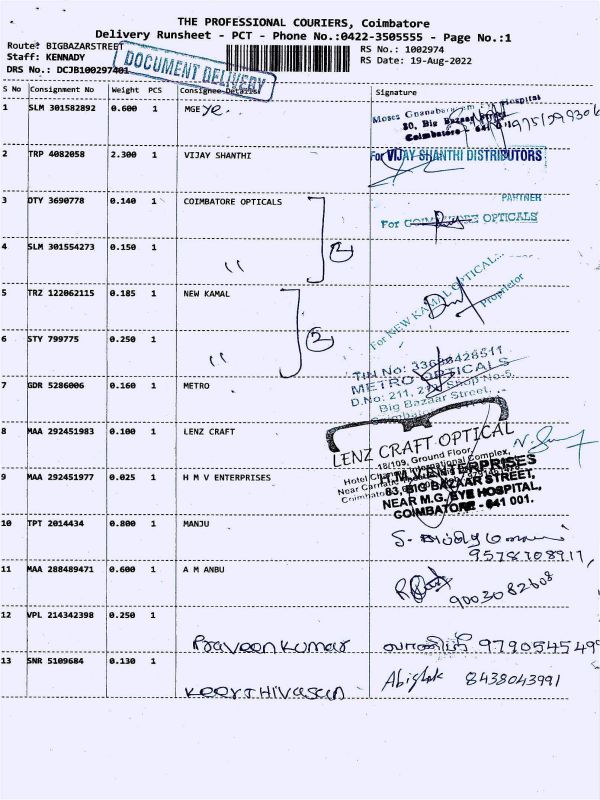 THE PROFESSIONAL COURIERS, Coimbatore
Delivery Runsheet - PCT - Phone No.:0422-3505555 - Page No.:1
Route: BIGBAZARSTREET
RS No.: 1002974
Staff: KENNADY
RS Date: 19-Aug-2022
DRS No.: DCJB100297401
DOCUMENT DELIVERY
S No Consignment No Weight PCS Consignee Details Signature
1 SLM 301582892 0.600 1 MGE ye..
Hospital
80, Big Bazaar
Coimbatore
2 TRP 4082058 2.300 1 VIJAY SHANTHI
For VIJAY SHANTHI DISTRIBUTORS
PARTNER
3 DTY 3690778 0.140 1 COIMBATORE OPTICALS
For COIMBATORE OPTICALS
4 SLM 301554273 0.150 1 " 2
5 TRZ 122062115 0.185 1 NEW KAMAL
For NEW KAMAL OPTICAL...
Proprietor
6 STY 799775 0.250 1 " 2
7 GDR 5286006 0.160 1 METRO
TIN No: 33686428511
METRO OPTICALS
D.No: 211, Shop No-5,
Big Bazaar Street,
8 MAA 292451983 0.100 1 LENZ CRAFT
LENZ CRAFT OPTICAL
18/109, Ground Floor,
9 MAA 292451977 0.025 1 H M V ENTERPRISES
H.M.V.ENTERPRISES
83, BIG BAZAAR STREET,
NEAR M.G. EYE HOSPITAL,
COIMBATORE - 641 001.
10 TPT 2014434 0.800 1 MANJU
9578708917
11 MAA 288489471 0.600 1 A M ANBU
9003082608
12 VPL 214342398 0.250 1 Praveen Kumar 9790545499
13 SNR 5109684 0.130 1 KeerTHivasan Abishek 8438043991